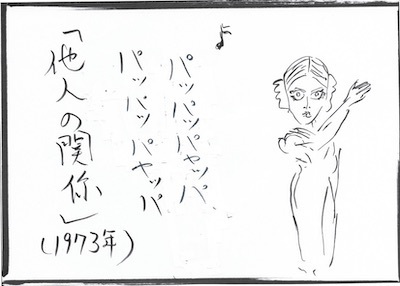 ♪
パッパッパヤッパ
パッパッパヤッパ
「他人の関係」
(1973年)